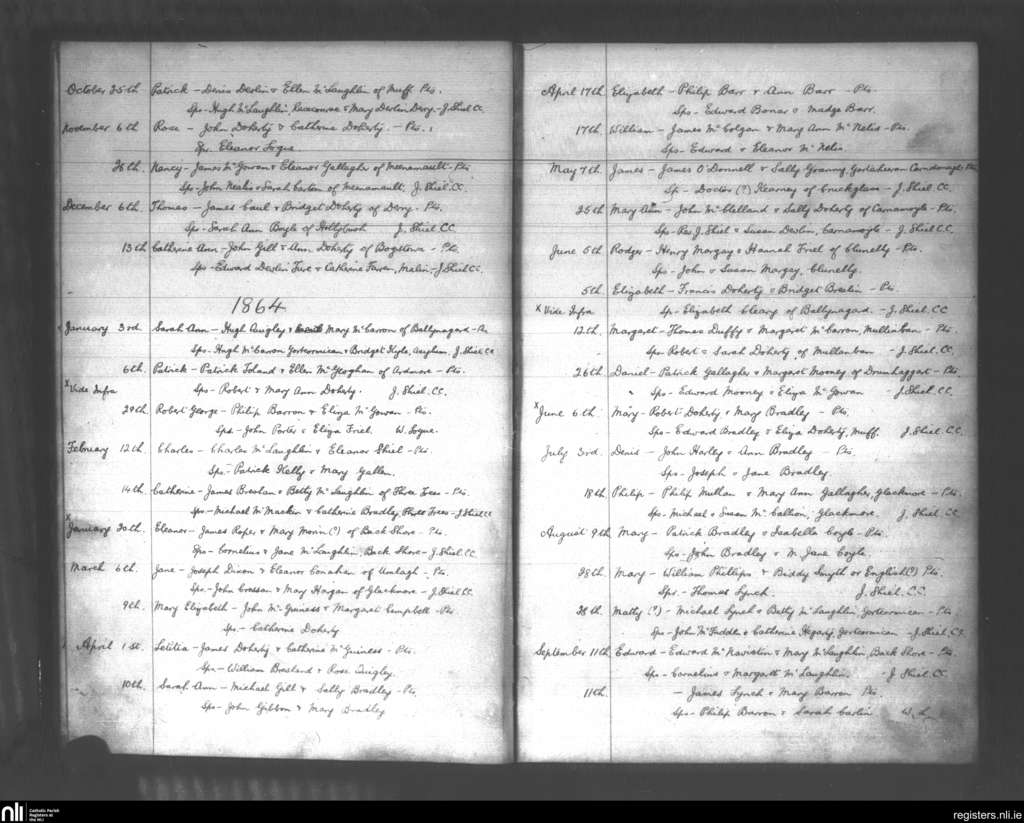 October 25th Patrick – Denis Devlin & Ellen McLaughlin of Muff. Pts.
Sps – Hugh McLaughlin, Racecourse & Mary Devlin Derry – J. Shiel CC
November 6th Rose – John Doherty & Catherine Doherty. – Pts.
Spr. Eleanor Logue
26th Nancy – James McGowan & Eleanor Gallagher of Meenamault – Pts
Sps – John Neales & Sarah Carton of Meenamault, J. Shiel. CC.
December 6th Thomas – James Caul & Bridget Doherty of Derry – Pts.
Sps – Sarah Ann Boyle of Hollybush J. Shiel CC
13th Catherine Ann – John Gill & Ann Doherty of Bogstown – Pts.
Sps – Edward Devlin & Catherine Farren, Malin – J. Shiel CC.
1864
x January 3rd Sarah Ann – Hugh Quigley & Mary McCarron of Ballynagard – Pts
Sps – Hugh McCarron Gortcormican & Bridget Kyle, Asylum. J. Shiel CC
6th. Patrick – Patrick Toland & Ellen McGeoghan of Ardmore – Pts.
x Vide Infra Sps – Robert & Mary Ann Doherty. J. Shiel. CC.
20th. Robert George – Philip Barron & Eliza McGowan – Pts.
Sps – John Porter & Eliza Friel. W. Logue.
February 12th. Charles – Charles McLaughlin & Eleanor Shiel – Pts.
Sps – Patrick Kelly & Mary Gallen.
14th. Catherine – James Breslan & Betty McLaughlin of Three Trees – Pts.
Sps – Michael McMackin & Catherine Bradley, Three Trees – J. Shiel CC
x January 30th. Eleanor – James Roper & Mary Morin (?) of Back Shore – Pts.
Sps – Cornelius & Jane McLaughlin, Back Shore – J. Shiel. CC.
March 6th. Jane – Joseph Dixon & Eleanor Conahan of Umlagh – Pts.
Sps – John Crossan & Mary Horgan of Glackmore – J. Shiel CC.
9th. Mary Elizabeth – John McGuiness & Margaret Campbell – Pts
Sps. – Catherine Doherty
April 1st. Letitia – James Doherty & Catherine McGuiness – Pts.
Sps – William Bresland & Rose Quigley.
10th. Sarah Ann – Michael Gill & Sally Bradley – Pts.
Sps – John Gibbon & Mary Bradley
April 17th Elizabeth – Philip Barr & Ann Barr – Pts.
Sps – Edward Bonar & Madge Barr.
17th. William – James McColgan & Mary Ann McNelis – Pts.
Sps – Edward & Eleanor McNelis.
May 7th. James – James O'Donnell & Sally Granny, Carnamoyle – Pts
Sp – Doctor (?) Kearney of Cruckglass – J. Shiel. CC.
25th Mary Ann – John McClelland & Sally Doherty of Carnamoyle – Pts.
Sps – Rev. J. Shiel & Susan Devlin, Carnamoyle – J. Shiel CC
June 5th Rodger – Henry Margay & Hannah Friel of Clunelly – Pts.
Sps – John & Susan Margay, Clunelly.
5th. Elizabeth – Francis Doherty & Bridget Breslin – Pts.
x Vide Infra Sp – Elizabeth Cleary of Ballynagard. – J. Shiel. CC
12th. Margaret – Thomas Duffy & Margaret McCarron, Mullanban – Pts.
Sps – Robert & Sarah Doherty of Mullanban – J. Shiel. CC.
26th. Daniel – Patrick Gallagher & Margaret Mooney of Drumhaggart – Pts.
Sps – Edward Mooney & Eliza McGowan – J. Shiel CC.
x June 6th. Mary – Robert Doherty & Mary Bradley – Pts.
Sps – Edward Bradley & Eliza Doherty, Muff. J. Shiel. CC.
July 3rd. Denis – John Harley & Ann Bradley – Pts.
Sps – Joseph & Jane Bradley
18th. Philip – Philip Mullan & Mary Ann Gallagher, Glackmore – Pts.
Sps – Michael & Susan McCallion, Glackmore. J. Shiel. CC
August 9th Mary – Patrick Bradley & Isabella Coyle – Pts.
Sps – John Bradley & M. Jane Coyle.
28th. Mary – William Phillips & Biddy Smyth or English (?) Pts.
Sps – Thomas Lynch. J. Shiel. CC.
28th Matty (?) – Michael Lynch & Betty McLaughlin, Gortcormican – Pts.
Sps – John McFadden & Catherine Hegarty, Gortcormican – J. Shiel, CC.
September 11th Edward – Edward McNaviston & Mary McLaughlin, Back Shore – Pts.
Sps – Cornelius & Margaret McLaughlin. J. Shiel. CC
11th. – James Lynch & Mary Barron Pts.
Sps – Philip Barron & Sarah Carlin W. L
nli Catholic Parish Registers at the NLI
registers.nli.ie